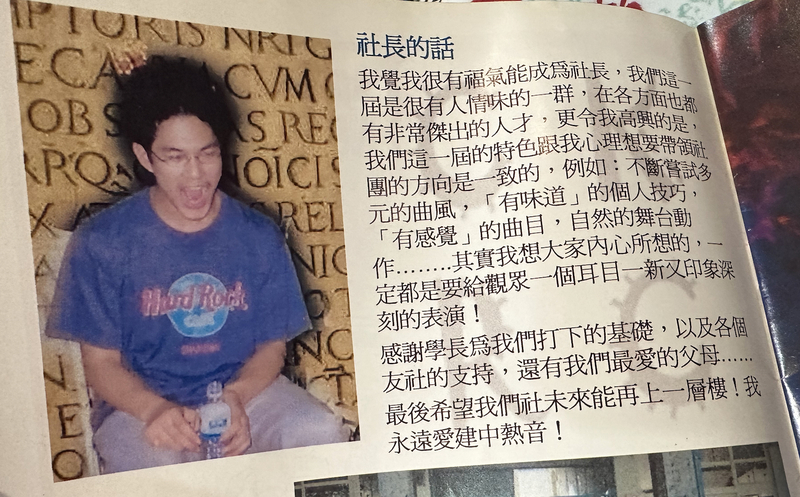 社長的話
我覺我很有福氣能成爲社長，我們這一
屆是很有人情味的一群，在各方面也都
有非常傑出的人才，更令我高興的是，
我們這一屆的特色跟我心理想要帶領社
團的方向是一致的，例如：不斷嘗試多
元的曲風，「有味道」的個人技巧，
「有感覺」的曲目，自然的舞台動
作........其實我想大家內心所想的，一
定都是要給觀眾一個耳目一新又印象深
刻的表演！
感謝學長爲我們打下的基礎，以及各個
友社的支持，還有我們最愛的父母......
最後希望我們社未來能再上一層樓！我
永遠愛建中熱音！
Hard Rock
CAFE